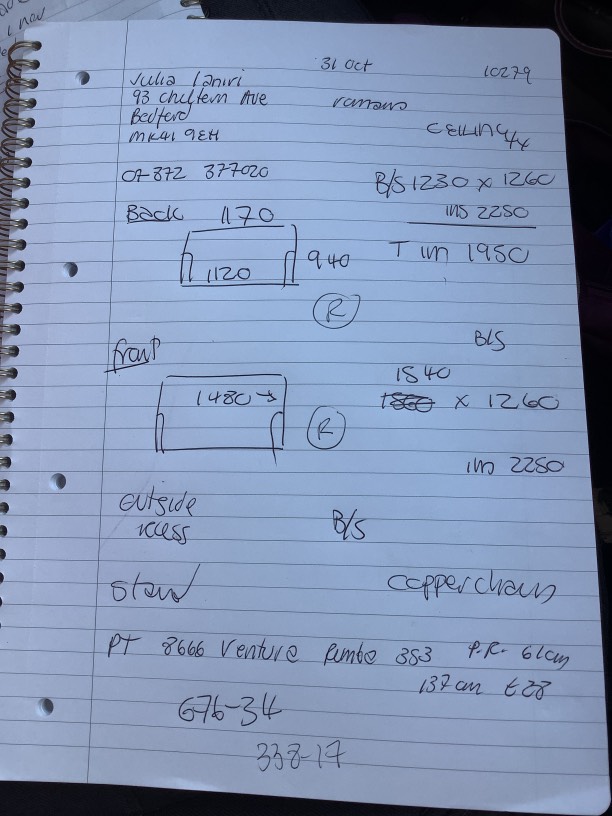 31 Oct
10279
Julia
93 Chiltern Ave
Bedford
MK41 9EH
romans
CEILING
07-872 377020
B/S 1230 x 1260
ins 2250
Back 1170
1120
940
T in 1950
R
B/S
front
1480
1540
x 1260
R
ins 2250
outside
recess
B/S
Stand
Copperchain
PT 8666 Venture 353 P.R. 61cm
137cm £28
676-34
338-17